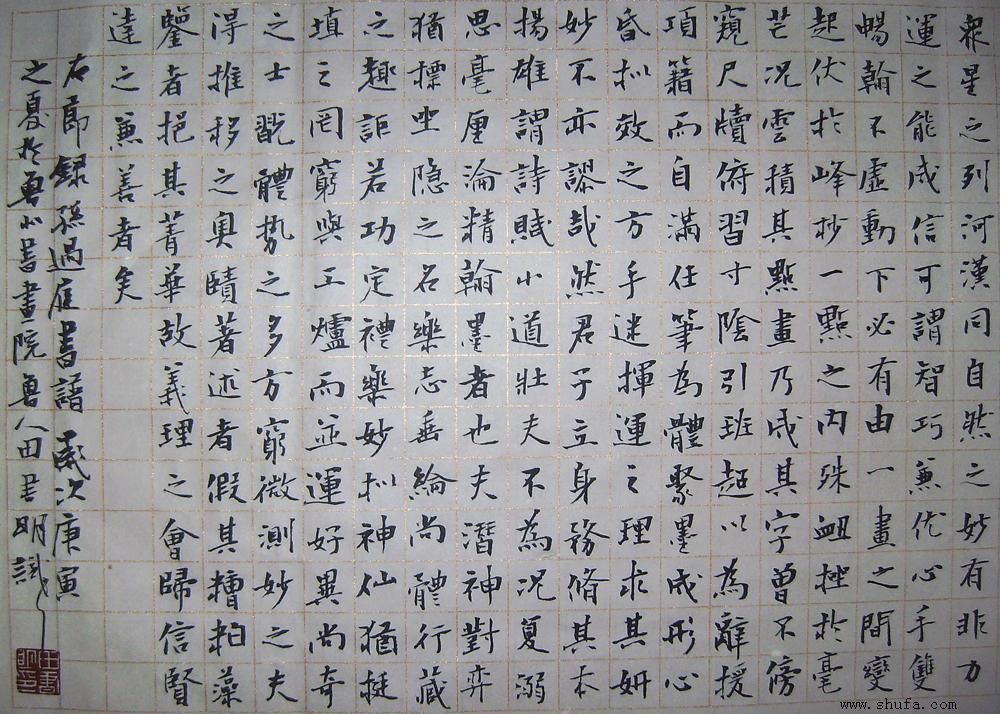 衆星之列河漢同自然之妙有非力
運之能成信可謂智巧兼优心手雙
暢翰不虛動下必有由一畫之間變
起伏於峰杪一點之内殊衄挫於毫
芒况雲積其點畫乃成其字曾不傍
窺尺牘俯習寸陰引班超以為辭援
項籍而自滿任筆為體聚墨成形心
昏拟效之方手迷揮運之理求其妍
妙不亦謬哉然君子立身務脩其本
揚雄謂詩賦小道壯夫不為况复溺
思毫厘淪精翰墨者也夫潛神對弈
猶摽坐隐之名樂志垂綸尚體行藏
之趣詎若功定禮樂妙拟神仙猶挻
填之罔窮與工爐而並運好異尚奇
之士翫體勢之多方窮微測妙之夫
淂推移之奥賾著述者假其糟粕藻
鑒者挹其菁華故義理之會歸信賢
達之兼善者矣
右節録孫過庭書譜歲次庚寅
之夏於魯北書畫院魯人田書明識
www.shufa.com